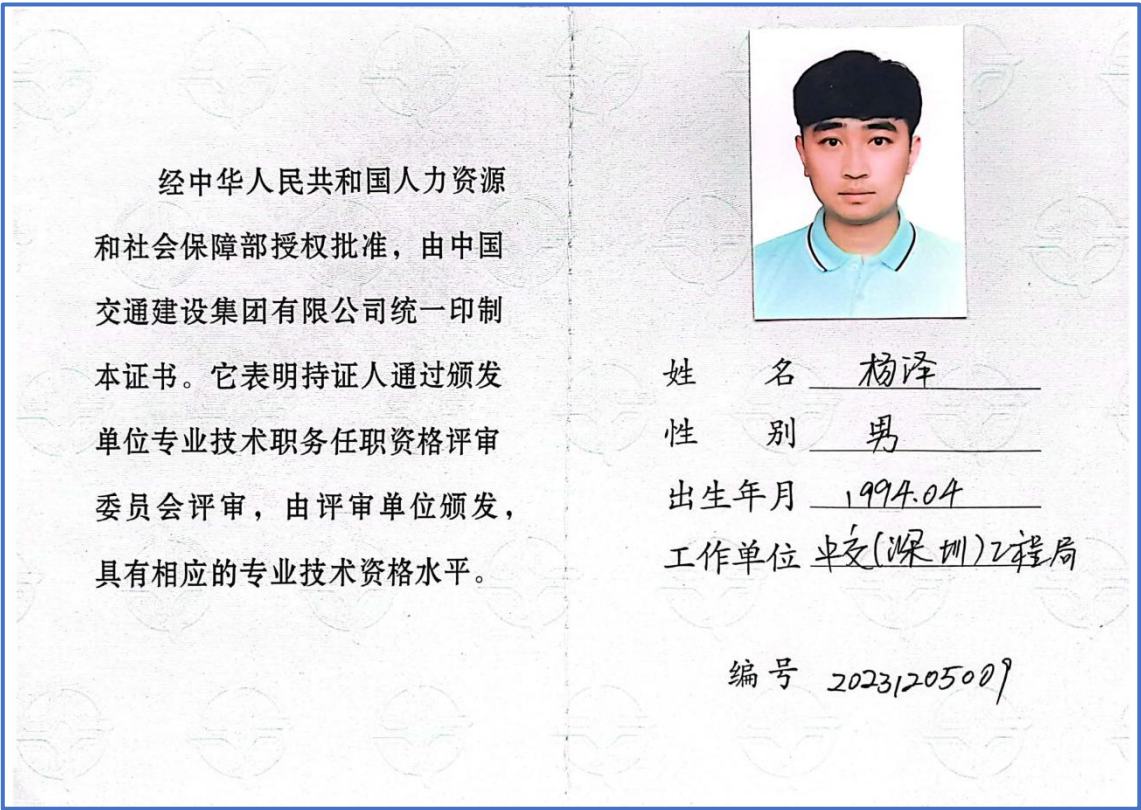 经中华人民共和国人力资源
和社会保障部授权批准，由中国
交通建设集团有限公司统一印制
本证书。它表明持证人通过颁发
单位专业技术职务任职资格评审
委员会评审，由评审单位颁发，
具有相应的专业技术资格水平。
姓 名 杨泽
性 别 男
出生年月 1994.04
工作单位 中交(深圳)工程局
编号 20231205009